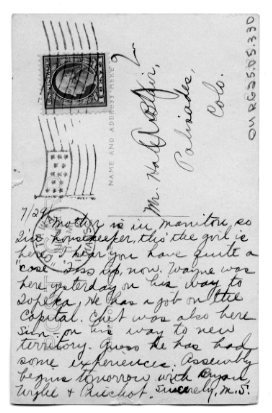 OUR625.05.330
NAME AND ADDRESS HERE
Mr. Ha
Palisades,
Colo.
7/24
Mother is in Manitou so
I'm housekeeper, tho the girl is
here. I hear you have quite a
"case" up now. Wayne was
here yesterday on his way to
Topeka, He has a job on the
Capital. Chet was also here
Sun. on his way to new
territory. Guess he has had
some experiences. Assembly
begins tomorrow with Bryan,
Wylie & Pinchot. Sincerely, M.S.